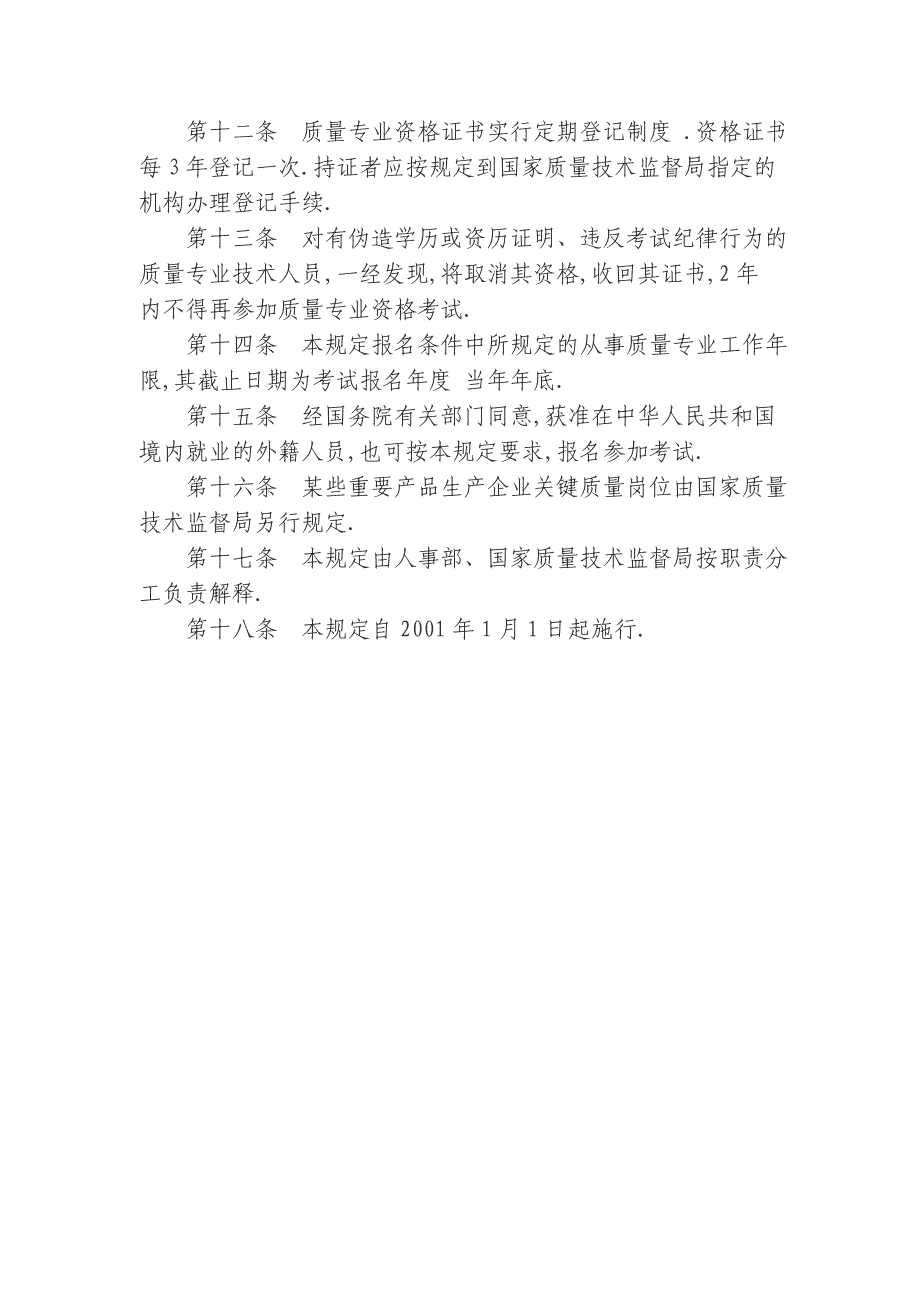 第十二条　质量专业资格证书实行定期登记制度 .资格证书
每 3 年登记一次.持证者应按规定到国家质量技术监督局指定的
机构办理登记手续.
第十三条　对有伪造学历或资历证明、违反考试纪律行为的
质量专业技术人员,一经发现,将取消其资格,收回其证书,2 年
内不得再参加质量专业资格考试.
第十四条　本规定报名条件中所规定的从事质量专业工作年
限,其截止日期为考试报名年度 当年年底.
第十五条　经国务院有关部门同意,获准在中华人民共和国
境内就业的外籍人员,也可按本规定要求,报名参加考试.
第十六条　某些重要产品生产企业关键质量岗位由国家质量
技术监督局另行规定.
第十七条　本规定由人事部、国家质量技术监督局按职责分
工负责解释.
第十八条　本规定自 2001 年 1 月 1 日起施行.